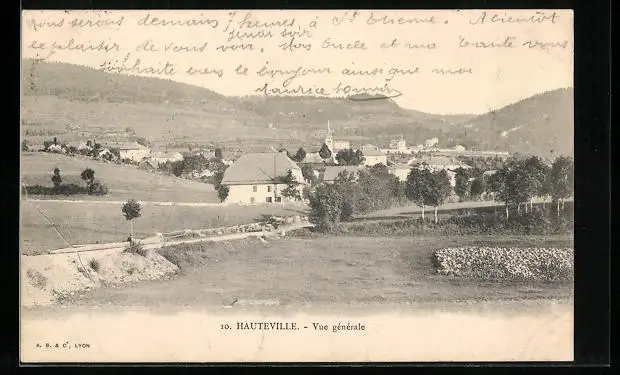 Nous serons demain 7 heures, à St Etienne. Abientôt
jeudi soir
le plaisir de vous voir, Mon Oncle et ma Tante vous
souhaite le bonjour ainsi que moi
Maurice
10. HAUTEVILLE. - Vue générale
A. B. & Cie, LYON